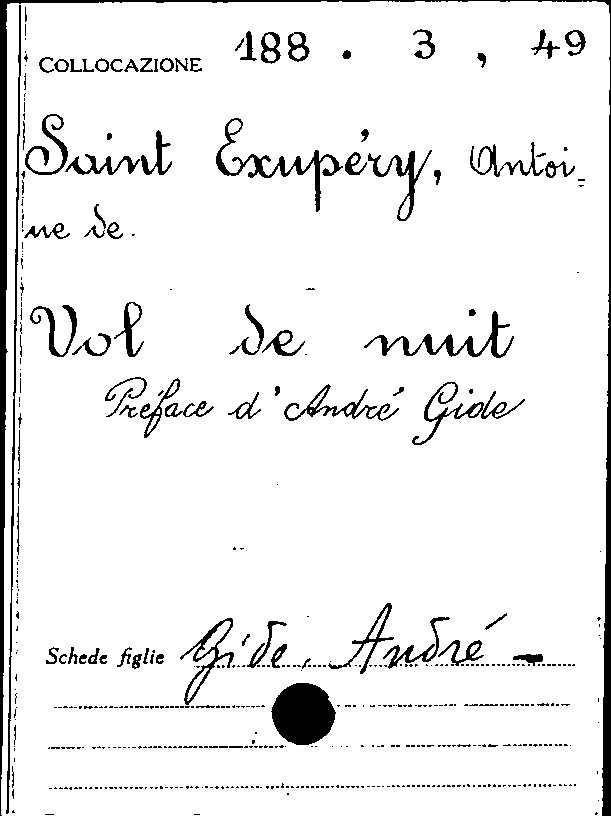 COLLOCAZIONE 188 . 3 , 49
Saint Exupéry, Antoi=
ne de.
Vol de nuit
Préface d'André Gide
Schede figlie Gide, André -